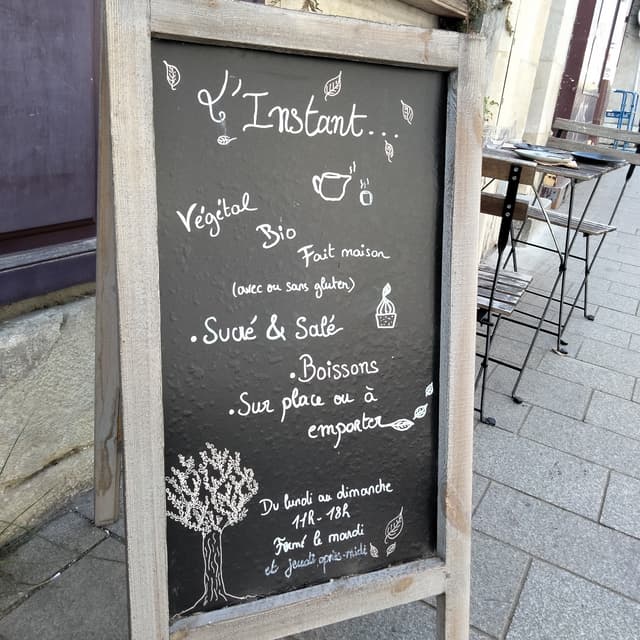 L'Instant...
Végétal
Bio
Fait maison
(avec ou sans gluten)
. Sucré & Salé
. Boissons
. Sur place ou à
emporter
Du lundi au dimanche
11h - 18h
Fermé le mardi
et jeudi après-midi